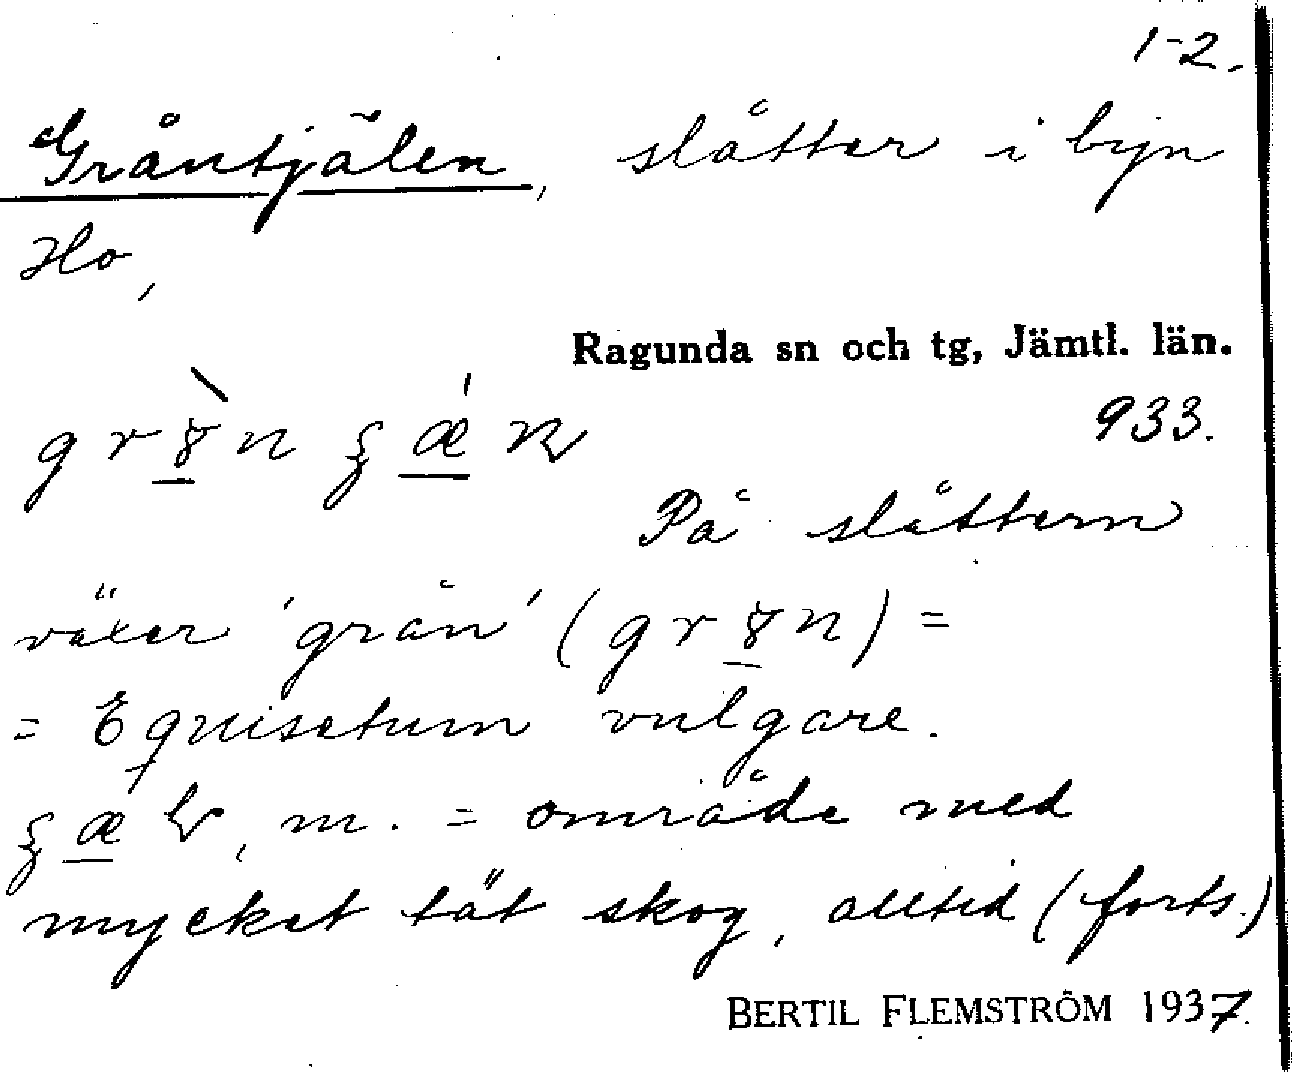 1-2.
Gråntjälen, slåtter i byn
Ho,
Ragunda sn och tg, Jämtl. län.
933.
På slåttern
växer 'grån' (gr n) =
= Equisetum vulgare.
m. = område med
mycket tät skog, alltid (forts.)
BERTIL FLEMSTRÖM 1937.